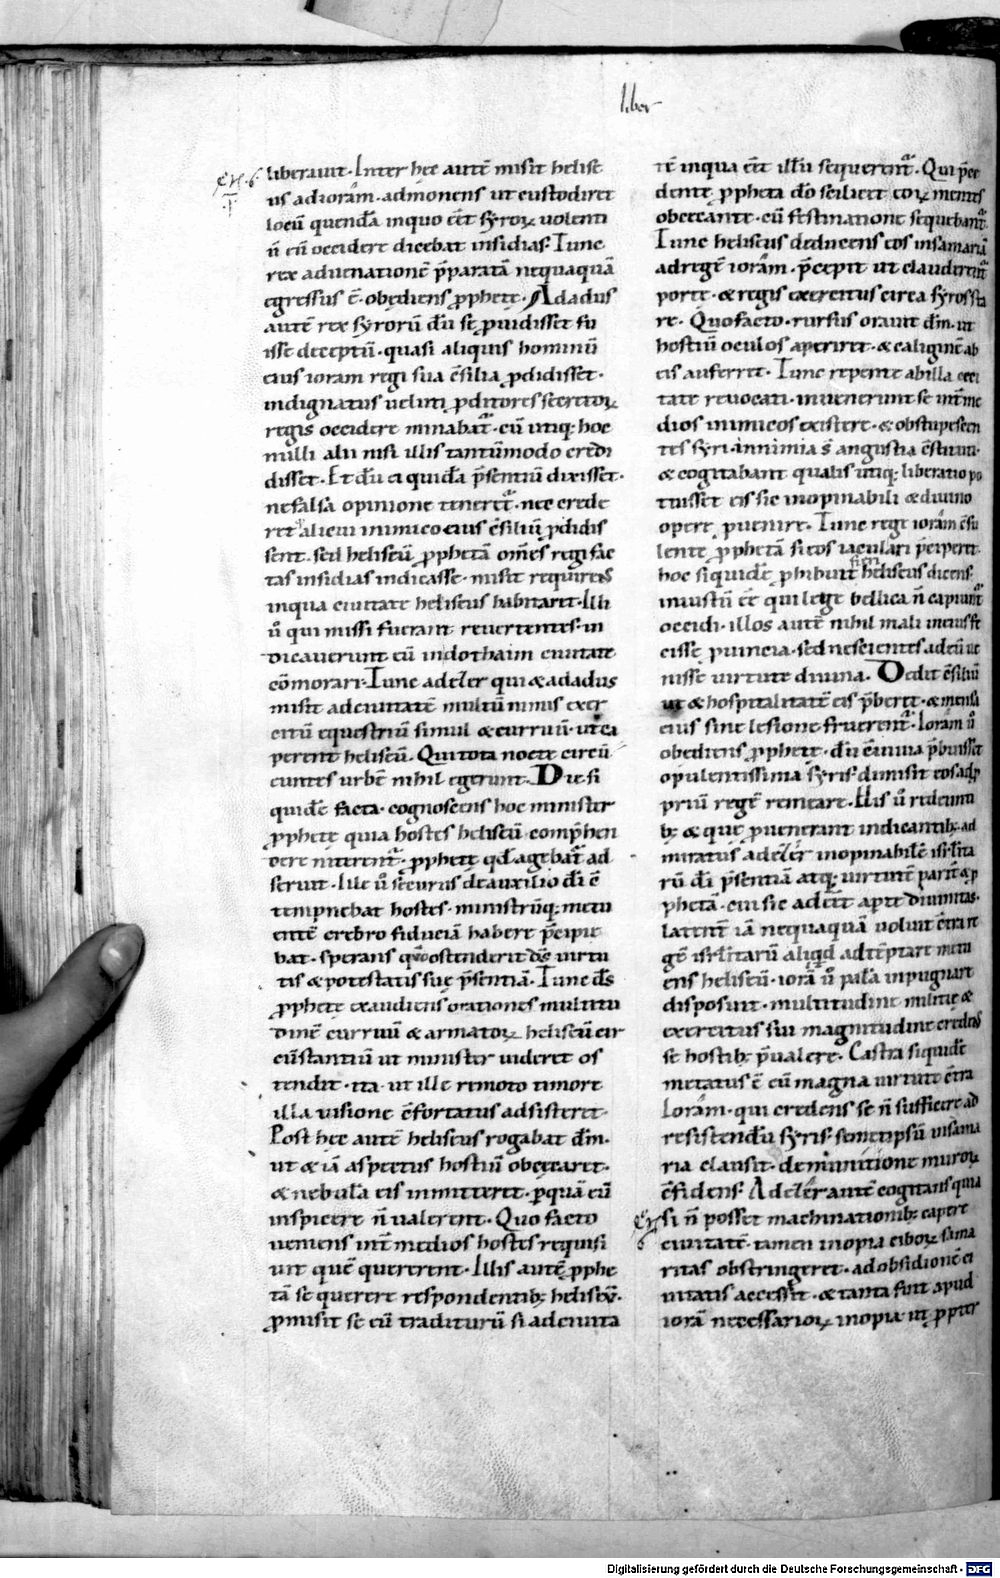 liber
liberauit. Inter hec autē misit helise
us ad iorām. admonens ut custodiret
locū quendā inquo eēt syroꝝ uolenti
n̄ cū occidere dicebat insidias. Tunc
rex aduenationē p̄paratā nequaquā
egressus ē. obędiens ꝓphetę. Adadus
autē rex syrorū dū se puidisset fu
isse deceptū. quasi aliquis hominū
eius ioram regi sua c̄silia ꝓdidisset.
indignatus ueluti ꝓditores secretoꝝ
regis occidere minabat̄. cū utiq; hoc
nulli alii nisi illis tantūmodo credi
disset. Et dū ei quidā p̄sentiū dixisset.
ne falsa opinione teneret̄. nec crede
ret alicui inimico eius c̄siliū ꝓdidis
sent. sed heliseū ꝓphetā om̄es regi fac
tas insidias indicasse. misit requirens
inqua ciuitate heliseus habitaret. Illi
ū qui missi fuerant reuertentes. in
dicauerunt eū indothaim ciuitate
cōmorari. Tunc adeler qui & adadus
misit adciuitatē multitū nimis exer
citū equestriū simul & curruū. ut ca
perent heliseū. Qui tota nocte circū
euntes urbē nihil egerunt. Die si
quidē facta. cognoscens hoc minister
ꝓphetę quia hostes heliseū comp̄hen
dere niterent̄. ꝓphetę qd agebat̄ ad
seruit. Ille ū securus deauxilio dī ē
tempnebat hostes. ministrūq; metu
entē crebro fiduciā habere p̄cipie
bat. sperans qm ostenderit ds uirtu
tis & potestatis suę p̄sentiā. Tunc ds
ꝓphetę exaudiens orationes multitu
dinē curruū & armatoꝝ heliseū cir
cūstantiū ut minister uideret os
tendit. ita. ut ille remoto timore
illa uisione c̄fortatus adsisteret.
Post hęc autē heliseus rogabat dm̄.
ut & iā aspectus hostiū obcecaret.
& nebulā eis inmitteret. ꝑquā eū
inspicere n̄ ualerent. Quo facto
ueniens int̄ medios hostes requisi
uit quē quererent. Illis autē ꝓphe
tā se querere respondentib; heliseū.
ꝓmisit se eū traditurū si adciuita
tē inqua eēt illū sequerent̄. Qui p̄ce
dente ꝓpheta dō scilicet eoꝝ mentes
obcecante. cū festinatione sequebant̄.
Tunc heliseus deducens eos insamariā
adregē iorām. p̄cepit ut clauderent̄
portę. & regis exercitus circa syros sta
re. Quo facto. rursus orauit dm̄. ut
hostiū oculos aperiret. & caliginē ab
eis auferret. Tunc repente abilla ceci
tate reuocati. inuenerunt se int̄ me
dios inimicos existere. & obstupescen
tes syri. annimia s̄ angustia c̄stituti.
& cogitabant qualis utiq; liberatio po
tuisset eis sic inopinabili & diuino
opere ꝓuenire. Tunc rege iorām c̄su
lente ꝓphetā si eos iaculari p̄ciperet.
hoc siquidē ꝓhibuit fieri heliseus dicens.
iniustū eē qui lege bellica n̄ capiunt̄
occidi. illos autē nihil mali ineius fe
cisse ꝓuincia. sed nescientes adeū ue
nisse uirtute diuina. Dedit c̄siliū
ut & hospitalitatē eis p̄beret. & mensa
eius sine lesione fruerent̄. Iorām ū
obediens ꝓphetę. dū c̄uiuia p̄buisset
opulentissima syris. dimisit eos adp
priū regē remeare. His ū redeunti
b; & que ꝓuenerant indicantib;. ad
miratus adeler inopinabilē isrlita
rū dī p̄sentiā atq; uirtutē parit̄ & ꝓ
phetā. cui sic adeēt aperte diuinitas.
latent̄ iā nequaquā uoluit c̄tra re
gē isrlitarū aliqd adtēptare metu
ens heliseū. iorā ū palā inpugnare
disposuit. multitudine militię &
exercitus sui magnitudine credens
se hostib; p̄ualere. Castra siquidē
metatus ē cū magna uirtute c̄tra
Iorām. qui credens se n̄ sufficere ad
resistendū syris. semetipsū insama
ria clausit. demunitione muroꝝ
c̄fidens. Adeler autē cogitans quia
si n̄ posset machinationib; capere
ciuitatē. tamen inopia ciboꝝ sama
ritas obstringeret. ad obsidionē ci
uitatis accessit. & tanta fuit apud
iorā necessarioꝝ inopia ut ꝓpter
Digitalisierung gefördert durch die Deutsche Forschungsgemeinschaft - DFG